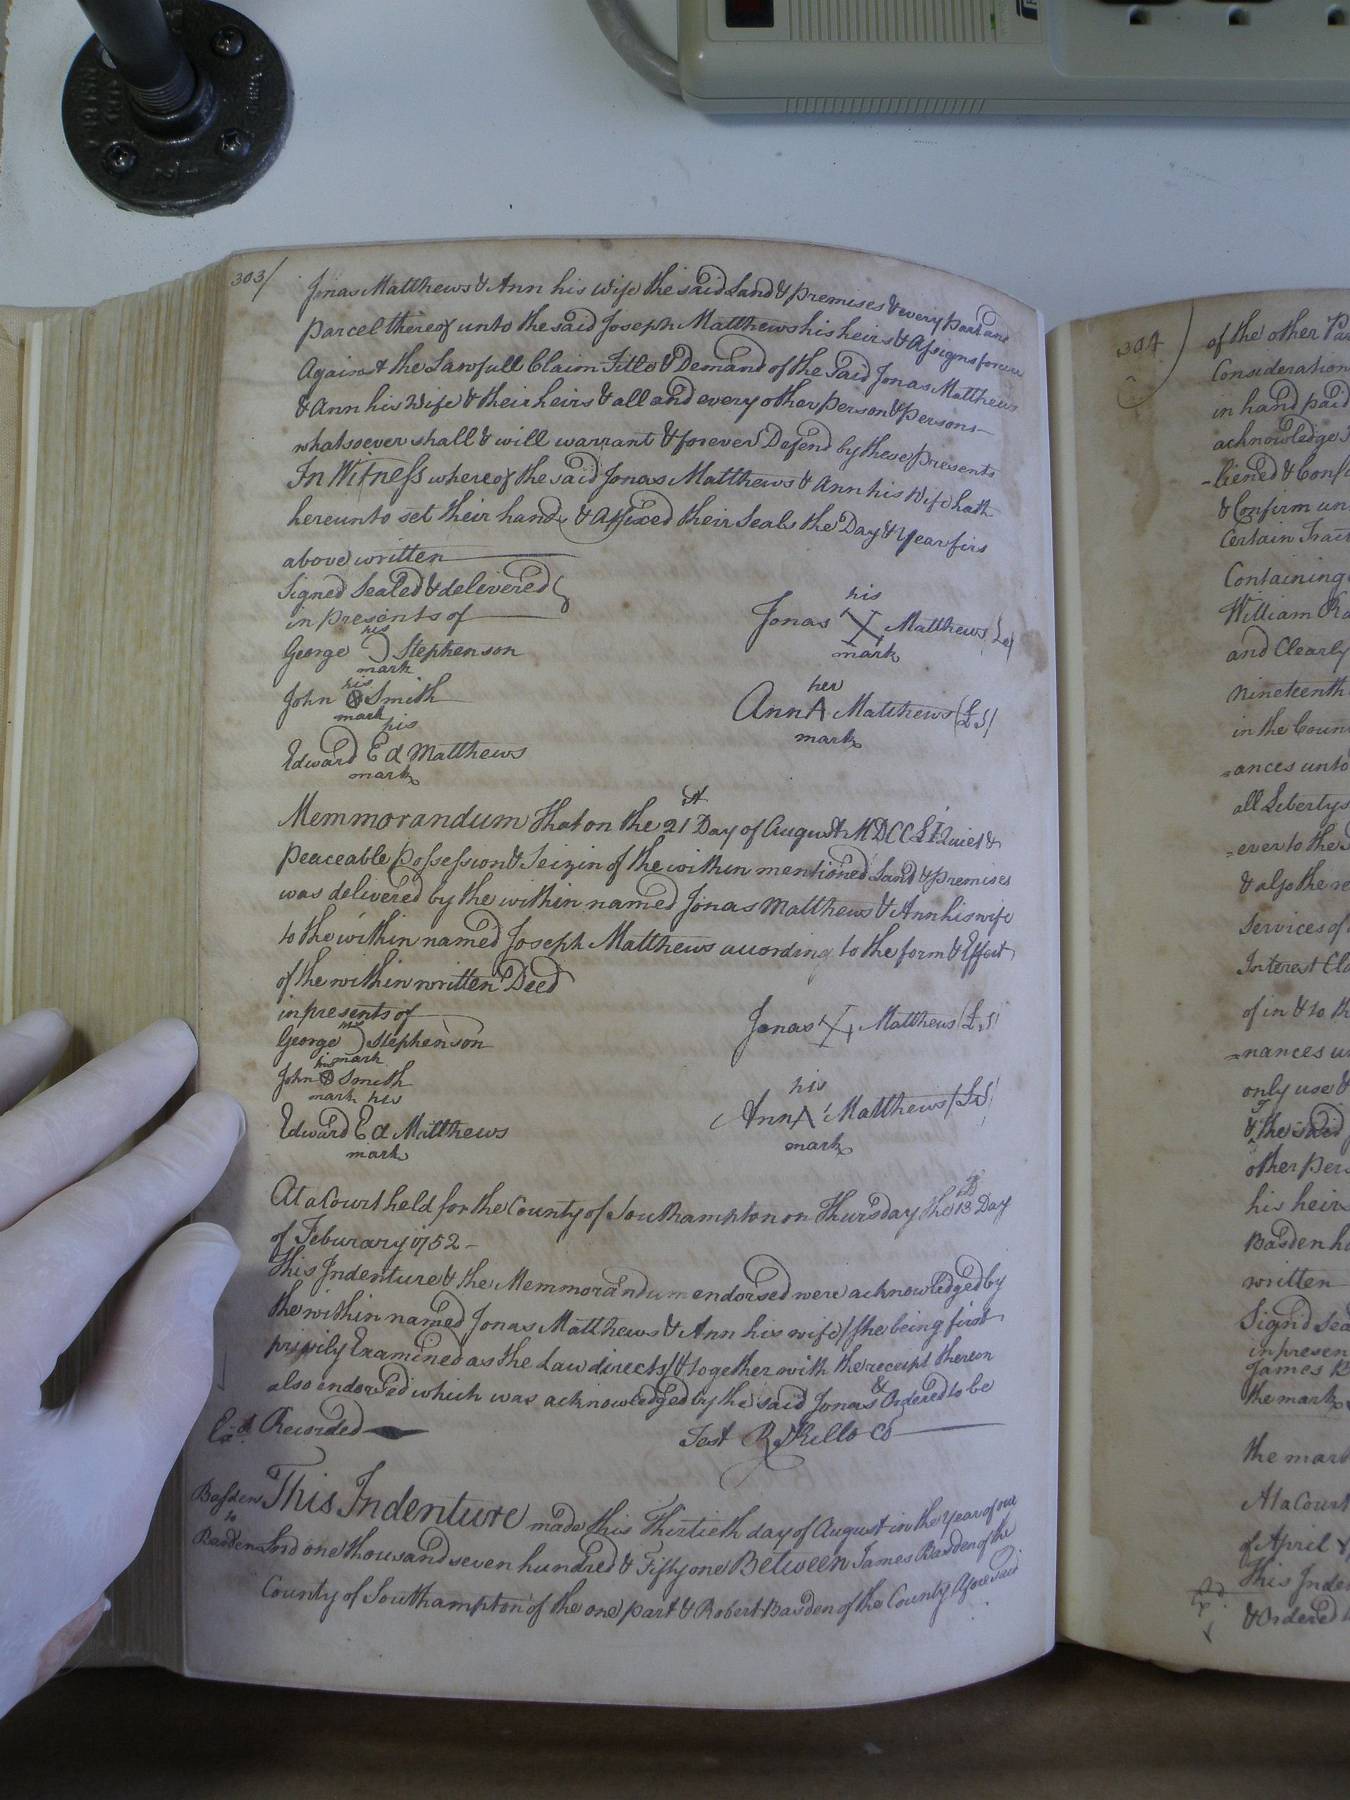 303/
Jonas Matthews & Ann his wife the said Land & premises & every part and
parcel thereof unto the said Joseph Matthews his heirs & Assigns forever
Against the Lawfull Claim Title & Demand of the said Jonas Matthews
& Ann his Wife & their heirs & all and every other person & persons
whatsoever shall & will warrant & forever Defend by these presents
In Witness whereof the said Jonas Matthews & Ann his Wife hath
hereunto set their hands & Affixed their Seals the Day & Year firs
above written
Signed Sealed & delivered
in presents of
his
George Stephenson
mark
his
John Smith
mark
his
Edward Ed Matthews
mark
his
Jonas X Matthews
mark
her
Ann A Matthews (LS)
mark
Memmorandum That on the 21st Day of August MDCCLI Quiet &
peaceable possession & Seizin of the within mentioned Land & premises
was delivered by the within named Jonas Matthews & Ann his wife
to the within named Joseph Matthews according to the form & Effect
of the within written Deed
in presents of
his
George Stephenson
mark
his
John Smith
mark his
Edward Ed Matthews
mark
Jonas X Matthews (LS)
his
Ann A Matthews (LS)
mark
At a Court held for the County of Southampton on Thursday the 13th Day
of Feburary 1752
This Indenture & the Memmorandum endorsed were acknowledged by
the within named Jonas Matthews & Ann his wife (she being first
privily Examined as the Law directs) & together with the receipt thereon
also endorsed which was acknowledged by the said Jonas & Ordered to be
Recorded
Test
Basden
to
Basden
This Indenture made this Thirtieth day of August in the Year of our
Lord one thousand seven hundred & Fifty one Between James Basden of the
County of Southampton of the one part & Robert Basden of the County Aforesaid
304
of the other
Consideration
in hand paid
acknowledge
& Confirm
Certain
Containing
William
and Clearly
Nineteenth
in the
=ances unto
all Libertys
=ever to the
& also the
Services of
Interest
of in & to
=nances
only use &
& the said
other
his heirs
Basden
written
Signd
in
James
the mark
the mark
At a Court
of April
This
& Ordered